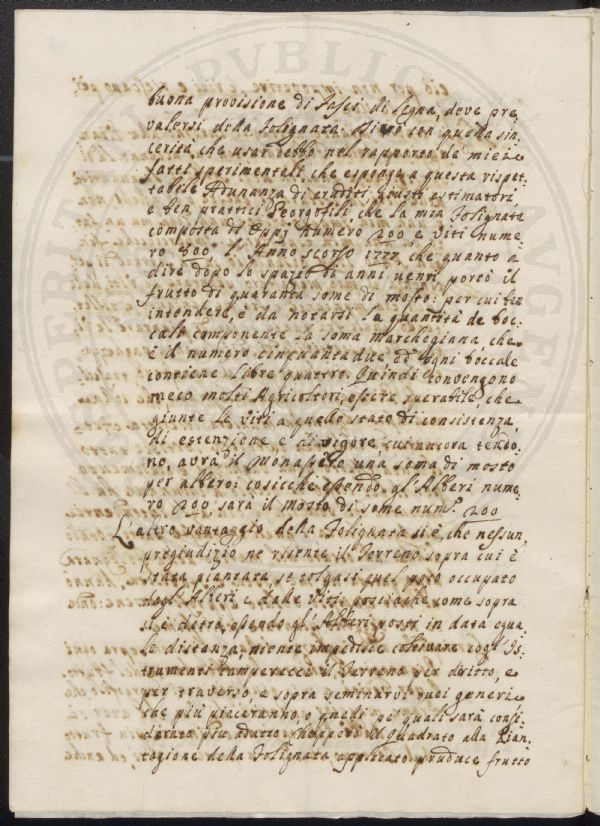 buona provisione di Fasci di Legna, deve pre:
valersi della Folignata. Dirò con quella sin:
cerità, che usar debbo nel rapporto de' miei
fatti sperimentali, che espongo a questa rispet:
tabile Adunanza di eruditi giusti estimatori,
e ben prattici Georgofili, che la mia Folignata
composta di Oppj Numero 200 e Viti nume:
ro 800, l'Anno scorso 1777, che quanto a
dire dopo lo spazio di anni venti, portò il
frutto di quaranta some di mosto: per cui ben
intendere, è da notarsi la quantità de boc:
cali componente la soma marchegiana, che
è il numero cinquantadue ed ogni boccale
contiene libre quattro. Quindi convengono
meco molti Agricoltori, essere sperabile, che
giunte le Viti a quello stato di consistenza,
di estenzione e di vigore, cui ancora tendo:
no, avrà il Monastero una soma di mosto
per albero: cosicchè essendo gl'Alberi nume:
ro 200, sarà il mosto di some num.° 200
L'altro vantaggio della Folignata si è, che nessun
pregiudizio ne risente il Terreno sopra cui è
stata piantata, se tolgasi quel poco occupato
dagl'Alberi, e dalle Viti: posciache come sopra
si è detto, essendo gl'Alberi posti in data egua:
le distanza, niente impedisce coltivare cogl'Is:
trumenti tamperecci il Terreno per diritto, e
per traverso, e sopra seminarvi quei generi
che più piaceranno, o quelli pe' quali sarà consi:
derato più adatto. Neppero il Quadrato alla Pian:
tagione della Folignata applicato produce frutto